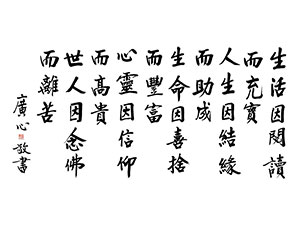 生活因閱讀
而充實
人生因結緣
而助成
生命因喜捨
而豐富
心靈因信仰
而高貴
世人因念佛
而離苦
廣心敬書